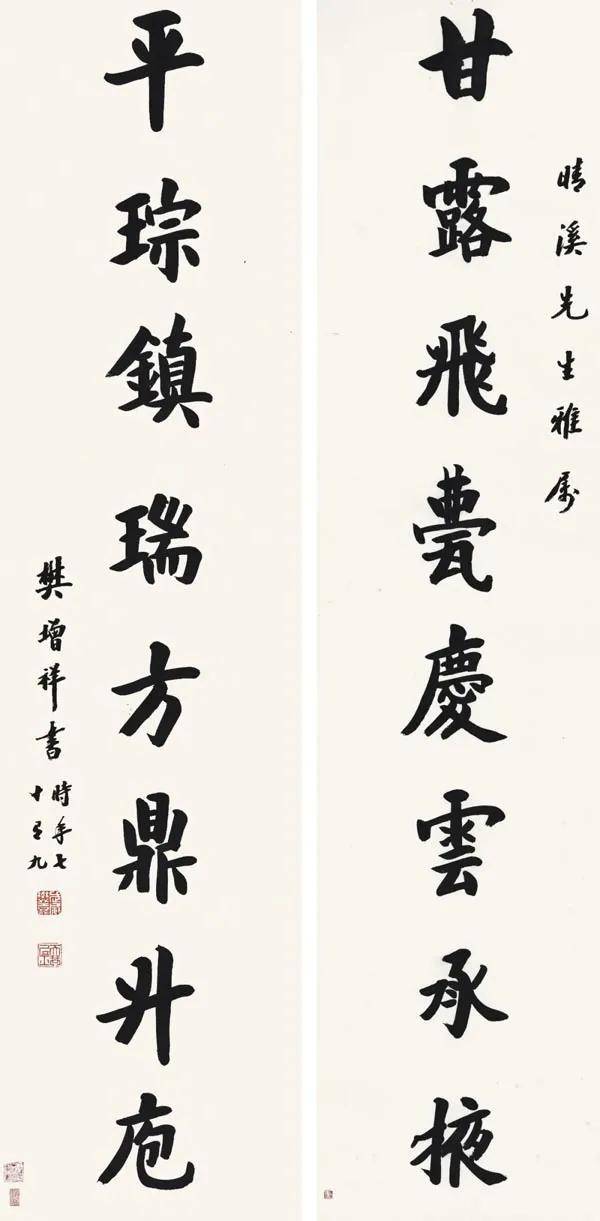 晴溪先生雅属
甘露飛甍慶雲承掖
平琮鎮瑞方鼎升庖
樊增祥書
時年七
十有九